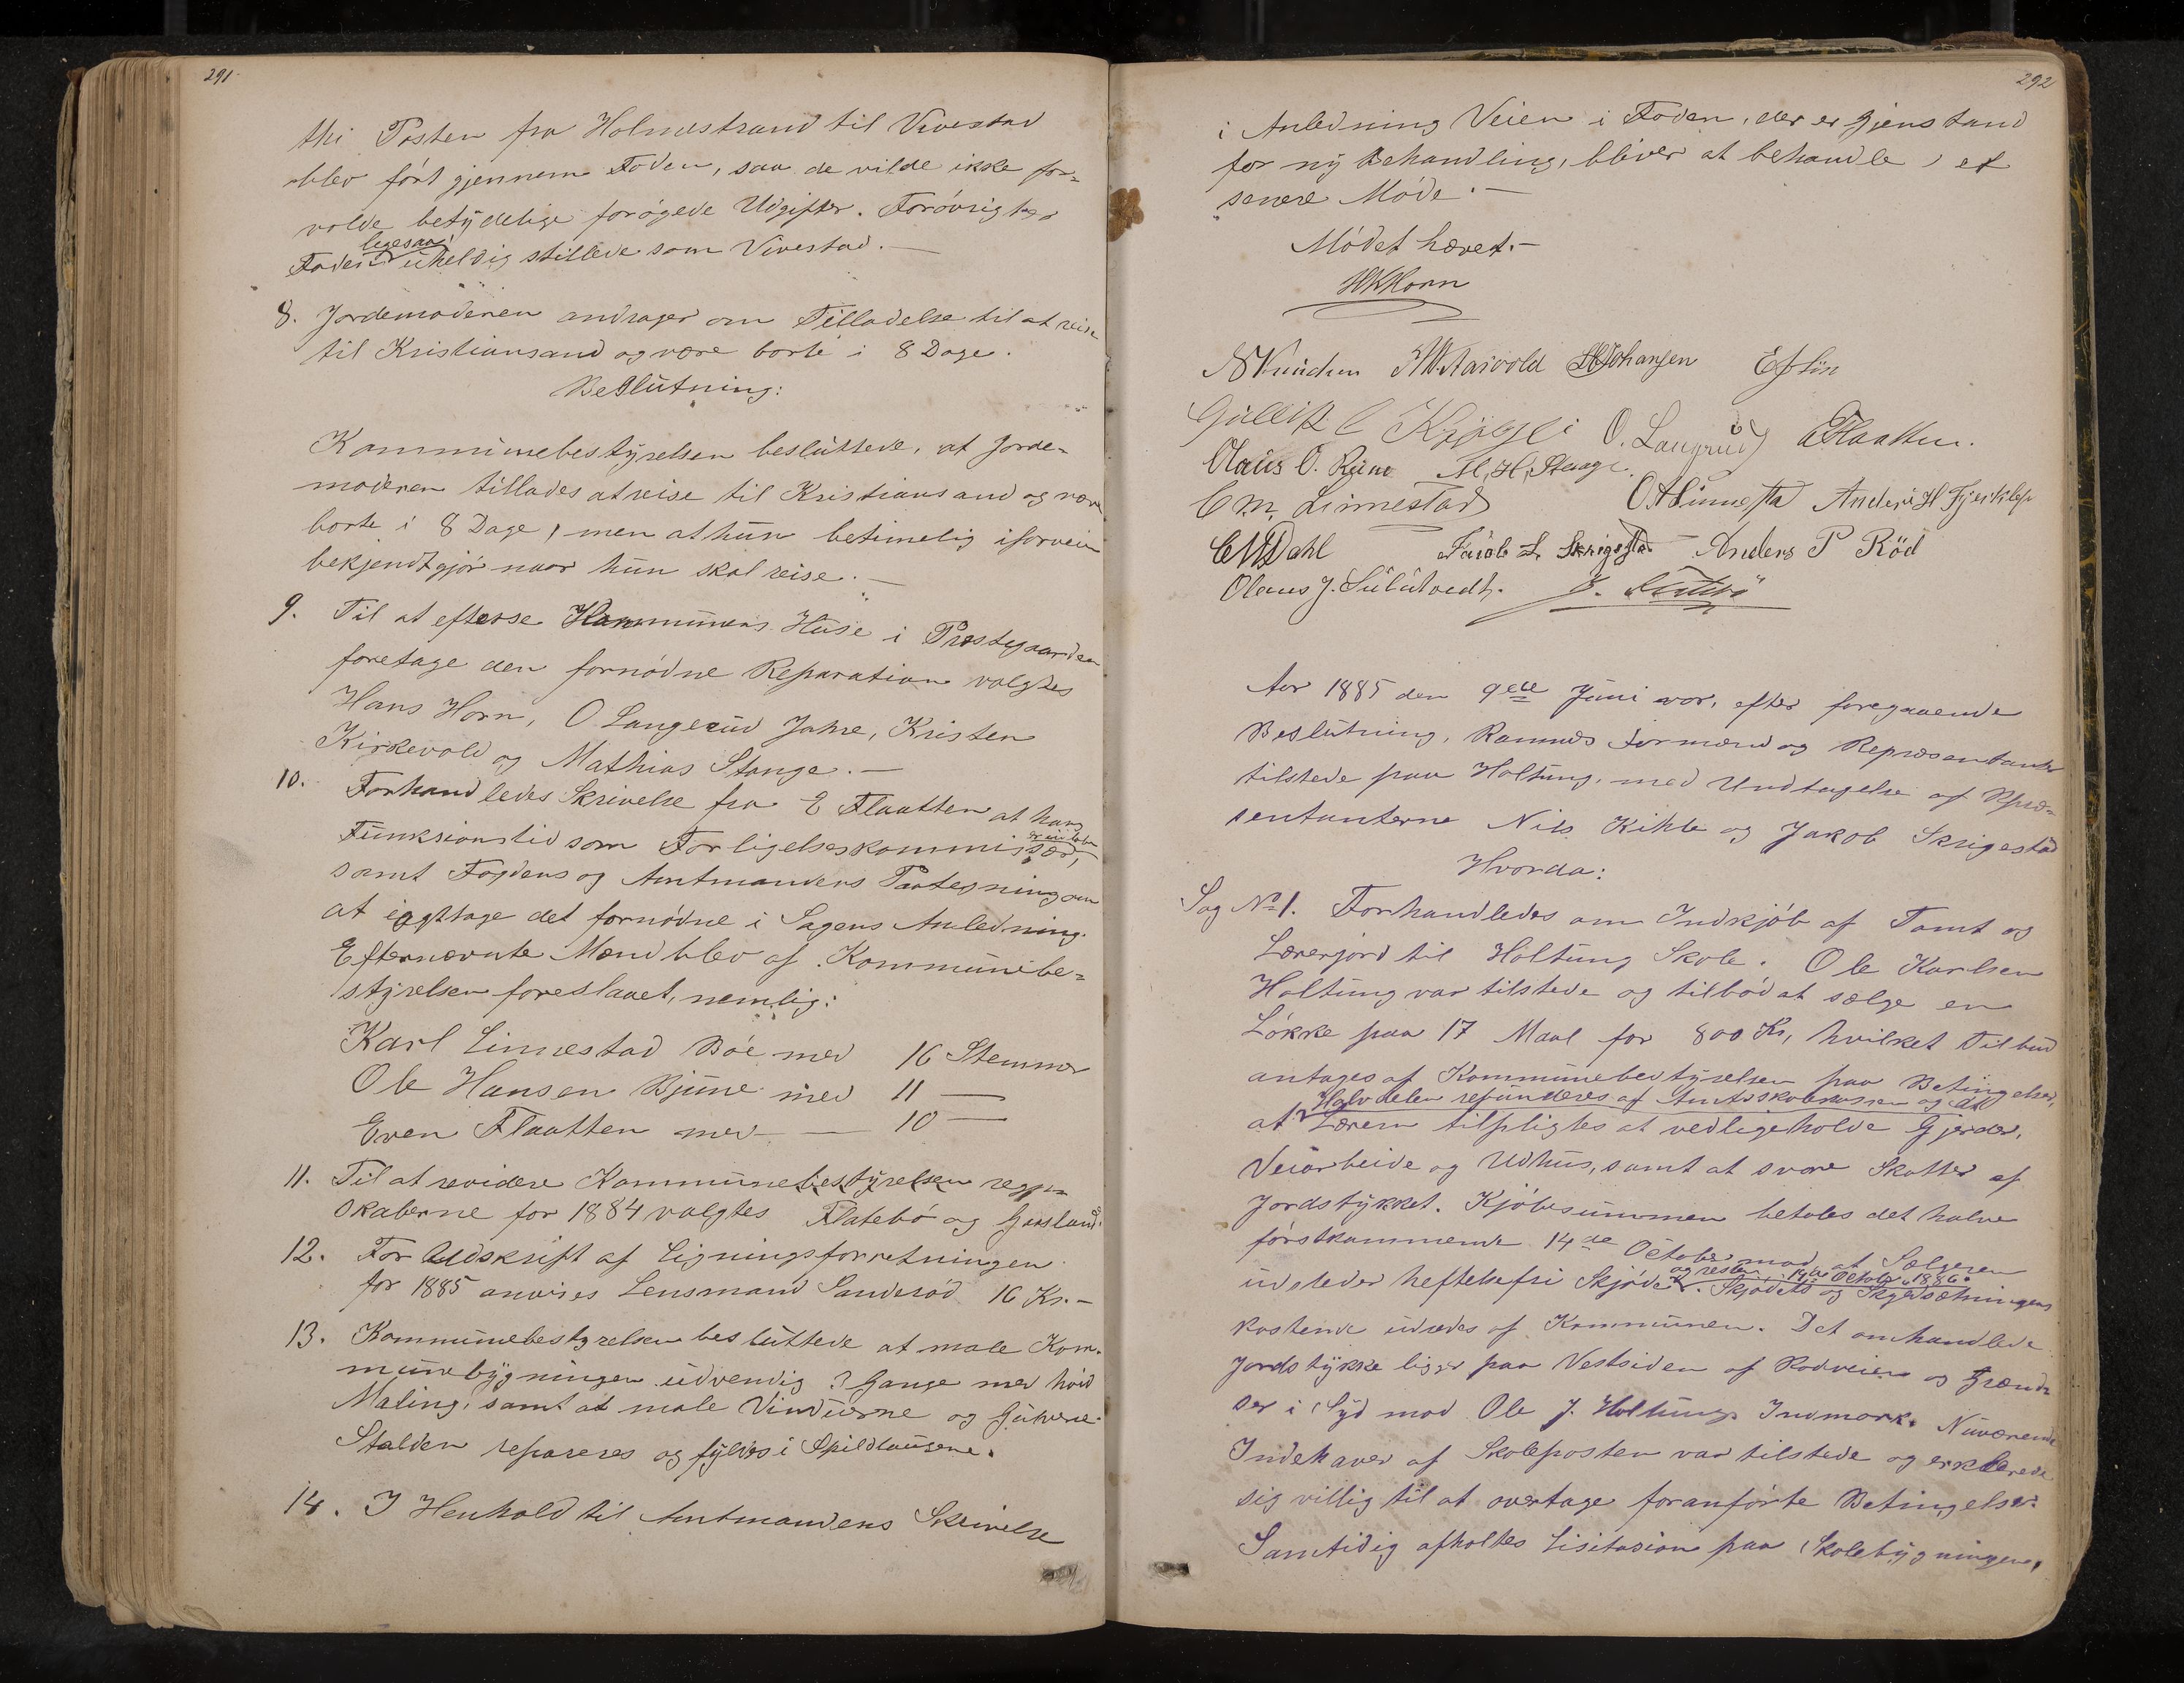 291
thi Posten fra Holmestrand til Vivestad
blev ført gjennem Foden, saa de vilde ikke for=
volde betydelige forøgede Udgifter. Forøvrigt er
ligesaa
Foden uheldig stillede som Vivestad.—
8. Jordemoderen andrager om Tilladelse til at reise
til Kristiansand og være borte i 8 Dage.
Beslutning:
Kommunebestyrelsen besluttede, at Jorde=
moderen tillades at reise til Kristiansand og være
borte i 8 Dage, men at hun betimelig iforveien
bekjendtgjør naar hun skal reise.—
9. Til at efterse Kommunens Huse i Præstegaarden
foretage den fornødne Reparation valgtes
Hans Horn, O Langerud Jahre, Kristen
Kirkevold og Mathias Stange.—
10. Forhandledes Skrivelse fra E Flaatten at hans
Funksionstid som Forligelseskommissær,
samt Fogdens og Amtmandens Paategning om
at iagttage det fornødne i Sagens Anledning.
Efternævnte Mænd blev af Kommunebe=
styrelsen foreslaaet, nemlig:
Karl Linnestad Bøe med 16 Stemmer
Ole Hansen Bjune med 11 —
Even Flaatten med — 10 —
11. Til at revidere Kommunebestyrelsen regn=
skaberne for 1884 valgtes Flatebø og Gaasland.
12. For Udskrift af Ligningsforretningen
for 1885 anvises Lensmand Sanderød 16 Kr.—
13. Kommunebestyrelsen besluttede at male Kom=
munebygningen udvendig 3 Gange med hvid
Maling, samt at male Vinduerne og
Stalden repareres og fyldes i Spildtaugene.
14. I Henhold til Amtmandens Skrivelse
292
i Anledning Veien i Foden, der er Gjenstand
for ny Behandling, bliver at behandle i et
senere Møde.—
Mødet hævet.—
HKHorn
NKuudsen Aasvold Johansen
O. Langrud EFlaatten.
Olaus O. Ruue M. H. Stange
C M. Linnestad O.ALinnestad Anders H Fyeldlep
Dahl Jacob L. Skrigestad Anders P Röd
Olaus J. Sulutvedt.
Aar 1885 den 9de Juni var, efter foregaaende
Beslutning, Ramnæs Formænd og Repræsentanter
tilstede paa Holtung, med Undtagelse af Repræ=
sentanterne Nils Kihle og Jakob Skrigestad
Hvorda:
Sag No 1. Forhandledes om Indkjøb af Tomt og
Lærerjord til Holtung Skole. Ole Karlsen
Holtung var tilstede og tilbød at sælge en
Løkke paa 17 Maal for 800 Kr, hvilket Tilbud
antages af Kommunebestyrelsen paa Betingelse,
Halvdelen refunderes af Amtsskolekassen og at
at Læreren tilpligtes at vedligeholde Gjerder,
Veiarbeide og Udhus, samt at svare Skatter af
Jordstykket. Kjøbesummen betales det halve
førstkommende 14de October mod at Sælgeren
og resten 14de October 1886.
udsteder heftelsefri Skjøde. Skjødets og Skyldsætningens
kostende udredes af Kommunen. Det omhandlede
Jordstykke ligger paa Vestsiden af Rodveien og grænd=
ser i Syd mod Ole J. Holtungs Indmark. Nuværende
Indehaver af Skoleposten var tilstede og erklærede
sig villig til at overtage foranførte Betingelser.
Samtidig afholtes Lisitasion paa Skolebygningen,